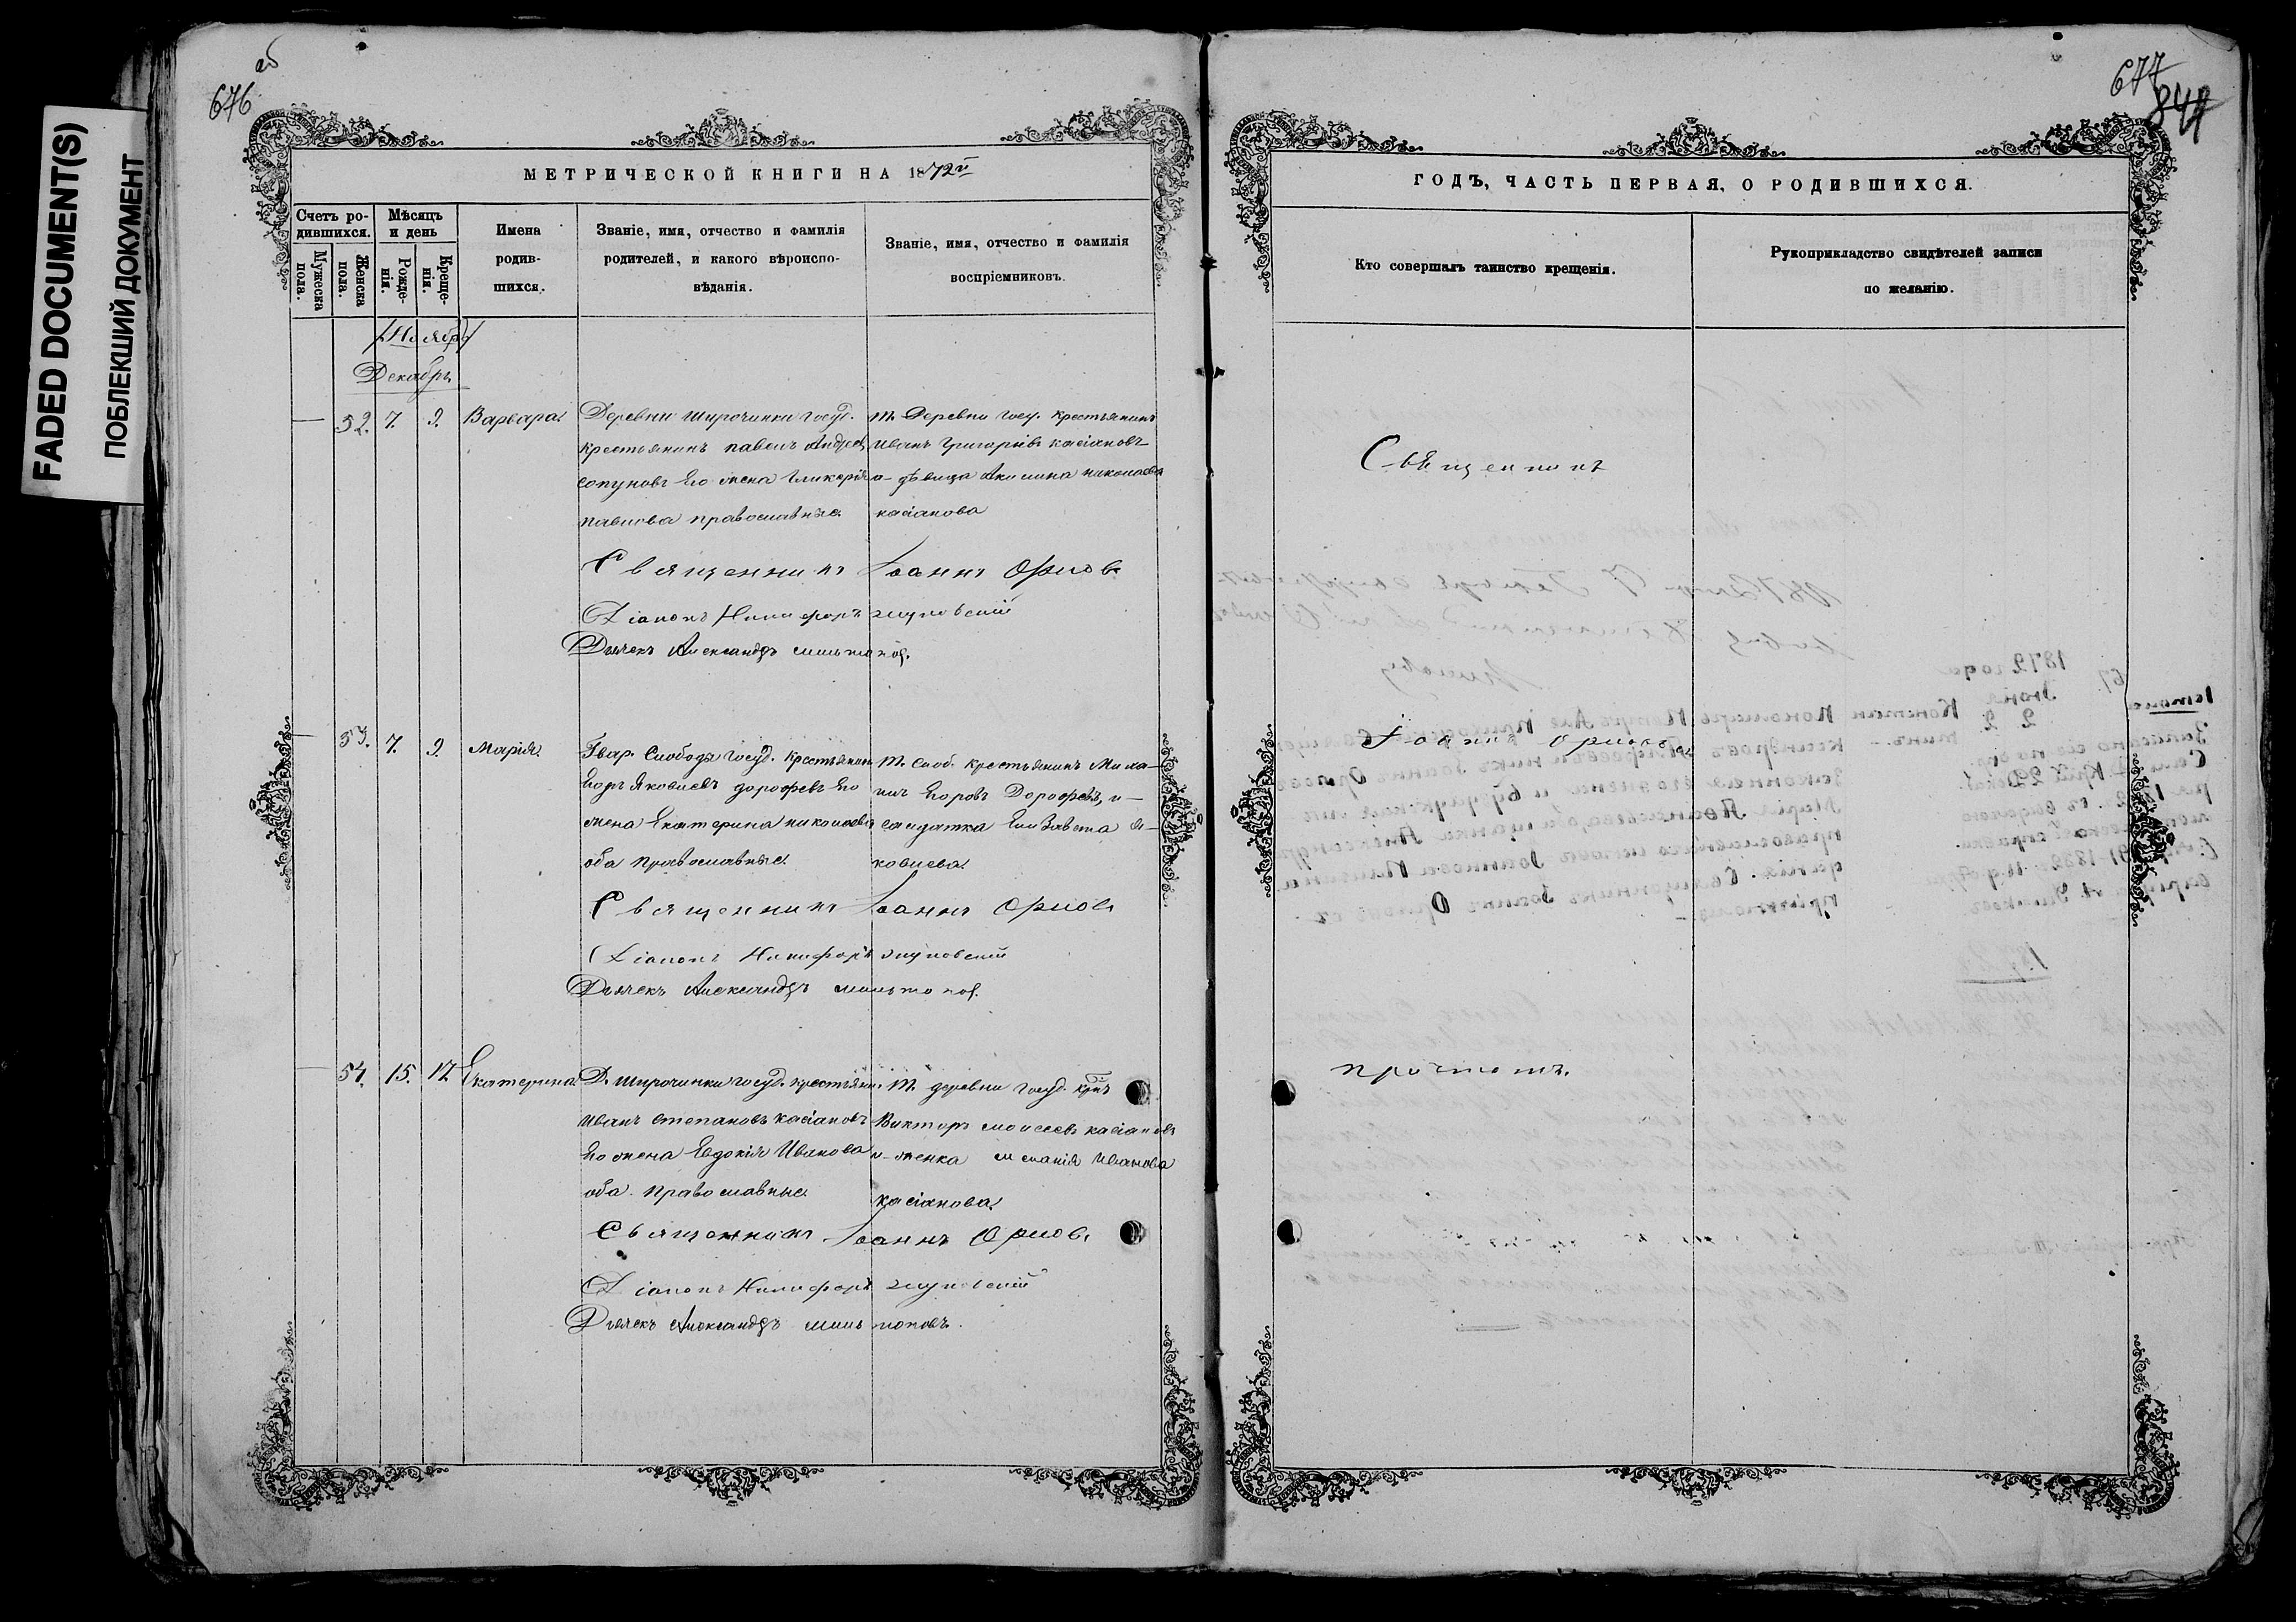 FADED DOCUMENT(S)
ПОБЛЕКШИЙ ДОКУМЕНТ
об
676
677
МЕТРИЧЕСКОЙ КНИГИ НА 1872й
ГОДЪ, ЧАСТЬ ПЕРВАЯ, О РОДИВШИХСЯ.
Счетъ ро-
дившихся.
Мужеска
пола.
Женска
пола.
Мѣсяцъ
и день
Рожде-
нія.
Креще-
нія.
Имена
родив-
шихся.
Званіе, имя, отчество и фамилія
родителей, и какого вѣроиспо-
вѣданія.
Званіе, имя, отчество и фамилія
воспріемниковъ.
Кто совершалъ таинство крещенія.
Рукоприкладство свидѣтелей записи
по желанію.
Ноябрь
Декабрь
52. 7. 9. Варвара
Деревни Широчинки госуд.
крестьянинъ павелъ Андреев
сопуновъ Его жена Гликерія
павлова православные
т. Деревни госу. крестьянинъ
иванъ григорьевъ касіановъ
и девица Акилина николаева
касіанова
Священникъ Іоаннъ Орлов
Діаконъ Никифоръ
Дьячекъ Александръ
Священникъ
53. 7. 9. Марія
Гвар. Слободы госуд. крестьянин
Егоръ Яковлевъ дорофеевъ Его
жена Екатерина николаева
оба православные
т. слоб. крестьянинъ Миха-
илъ Егоровъ Дорофеевъ, и
солдатка Елизавета я-
ковлева
Священникъ Іоаннъ Орлов
Діаконъ Никифоръ
Дьячекъ Александръ
Іоаннъ Орловъ съ
54. 15. 17. Екатерина
Д. Широчинки госуд. крестьянин
Иванъ степановъ касіановъ
Его жена Евдокія Иванова
оба православные
т. деревни госуд. кр-нъ
Викторъ моисеевъ касіановъ
и женка меланія Иванова
касіанова
Священникъ Іоаннъ Орлов
Діаконъ Никифоръ
Дьячекъ Александръ
причтомъ.